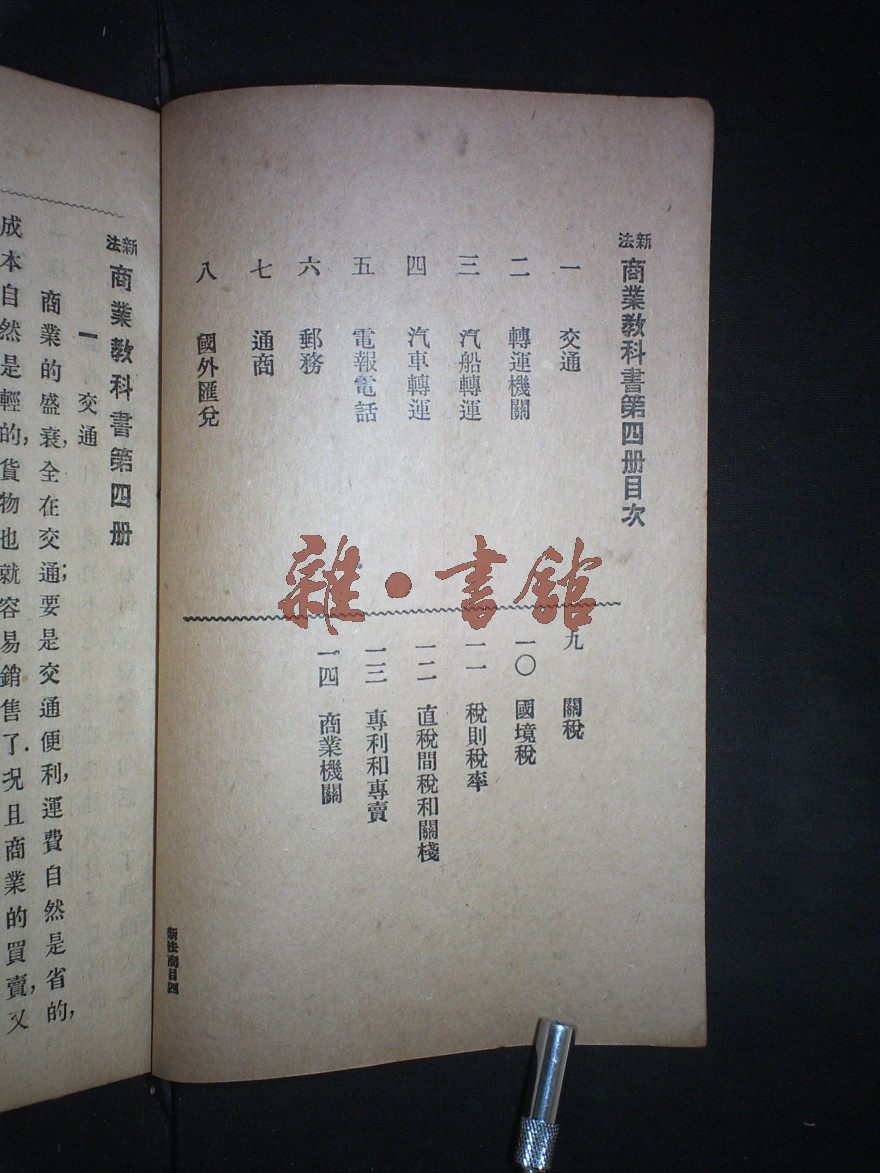 新法商業教科書第四册目次
一 交通
二 轉運機關
三 汽船轉運
四 汽車轉運
五 電報電話
六 郵務
七 通商
八 國外匯兌
九 關稅
一〇 國境稅
一一 稅則稅率
一二 直稅間稅和關棧
一三 專利和專賣
一四 商業機關
新法商目四
雜·書館
新法商業教科書第四册
一 交通
商業的盛衰,全在交通;要是交通便利,運費自然是省的,
成本自然是輕的,貨物也就容易銷售了.况且商業的買賣,又